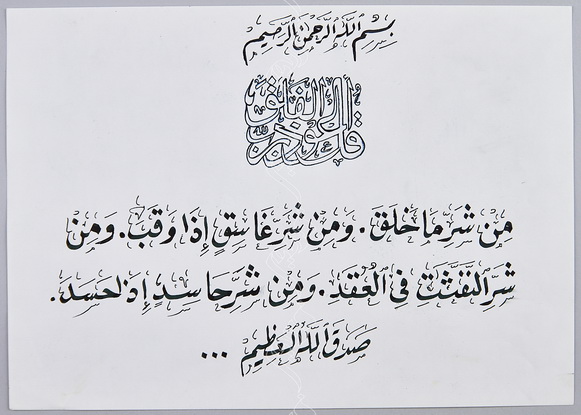 بِسْمِ اللَّهِ الرَّحْمٰنِ الرَّحِيمِ
قُلْ أَعُوذُ بِرَبِّ الْفَلَقِ
مِنْ شَرِّ مَا خَلَقَ . وَمِنْ شَرِّ غَاسِقٍ إِذَا وَقَبَ . وَمِنْ
شَرِّ النَّفَّثَتِ فِي الْعُقَدِ . وَمِنْ شَرِّ حَاسِدٍ إِذَا حَسَدَ .
صَدَقَ اللَّهُ الْعَظِيمِ ...